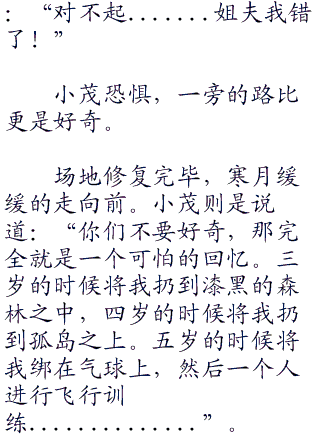 ：“对不起.......姐夫我错
了！”
小茂恐惧，一旁的路比
更是好奇。
场地修复完毕，寒月缓
缓的走向前。小茂则是说
道：“你们不要好奇，那完
全就是一个可怕的回忆。三
岁的时候将我扔到漆黑的森
林之中，四岁的时候将我扔
到孤岛之上。五岁的时候将
我绑在气球上，然后一个人
进行飞行训
练..............”。